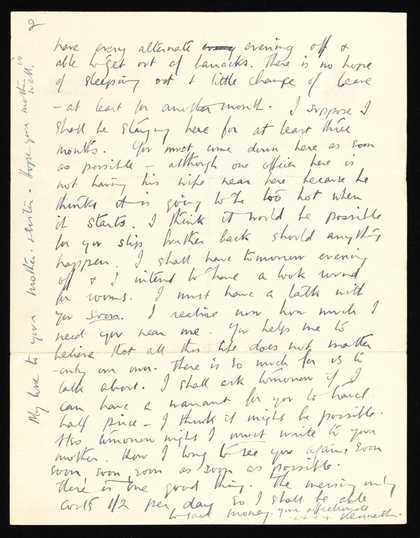 2
have every alternate evening off &
able to get out of barracks. There is no hope
of sleeping out & little chance of leave
– at least for another month. I suppose I
shall be staying here for at least three
months. You must come down here as soon
as possible – although one officer here is
not having his wife near here because he
thinks it is going to be too hot when
it starts. I think it would be possible
for you ship further back should anything
happen. I shall have tomorrow evening
off & I intend to have a look round
for rooms. I must have a talk with
you soon. I realise now how much I
need you near me. You helps me to
believe that all this life does not matter
– only our own. There is so much for us to
talk about. I shall ask tomorrow if I
can have a warrant for you to travel
half price – I think it might be possible.
This tomorrow night I must write to your
mother. How I long to see you again, soon
soon, soon, soon as soon as possible.
There is one good thing. The messing only
costs 1/2 per day so I shall be able
to save money. Your affectionate
Kenneth.
My love to your mother & sister & hope your mother is
well.